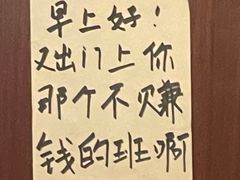 早上好！
又出门上你
那个不赚
钱的班啊